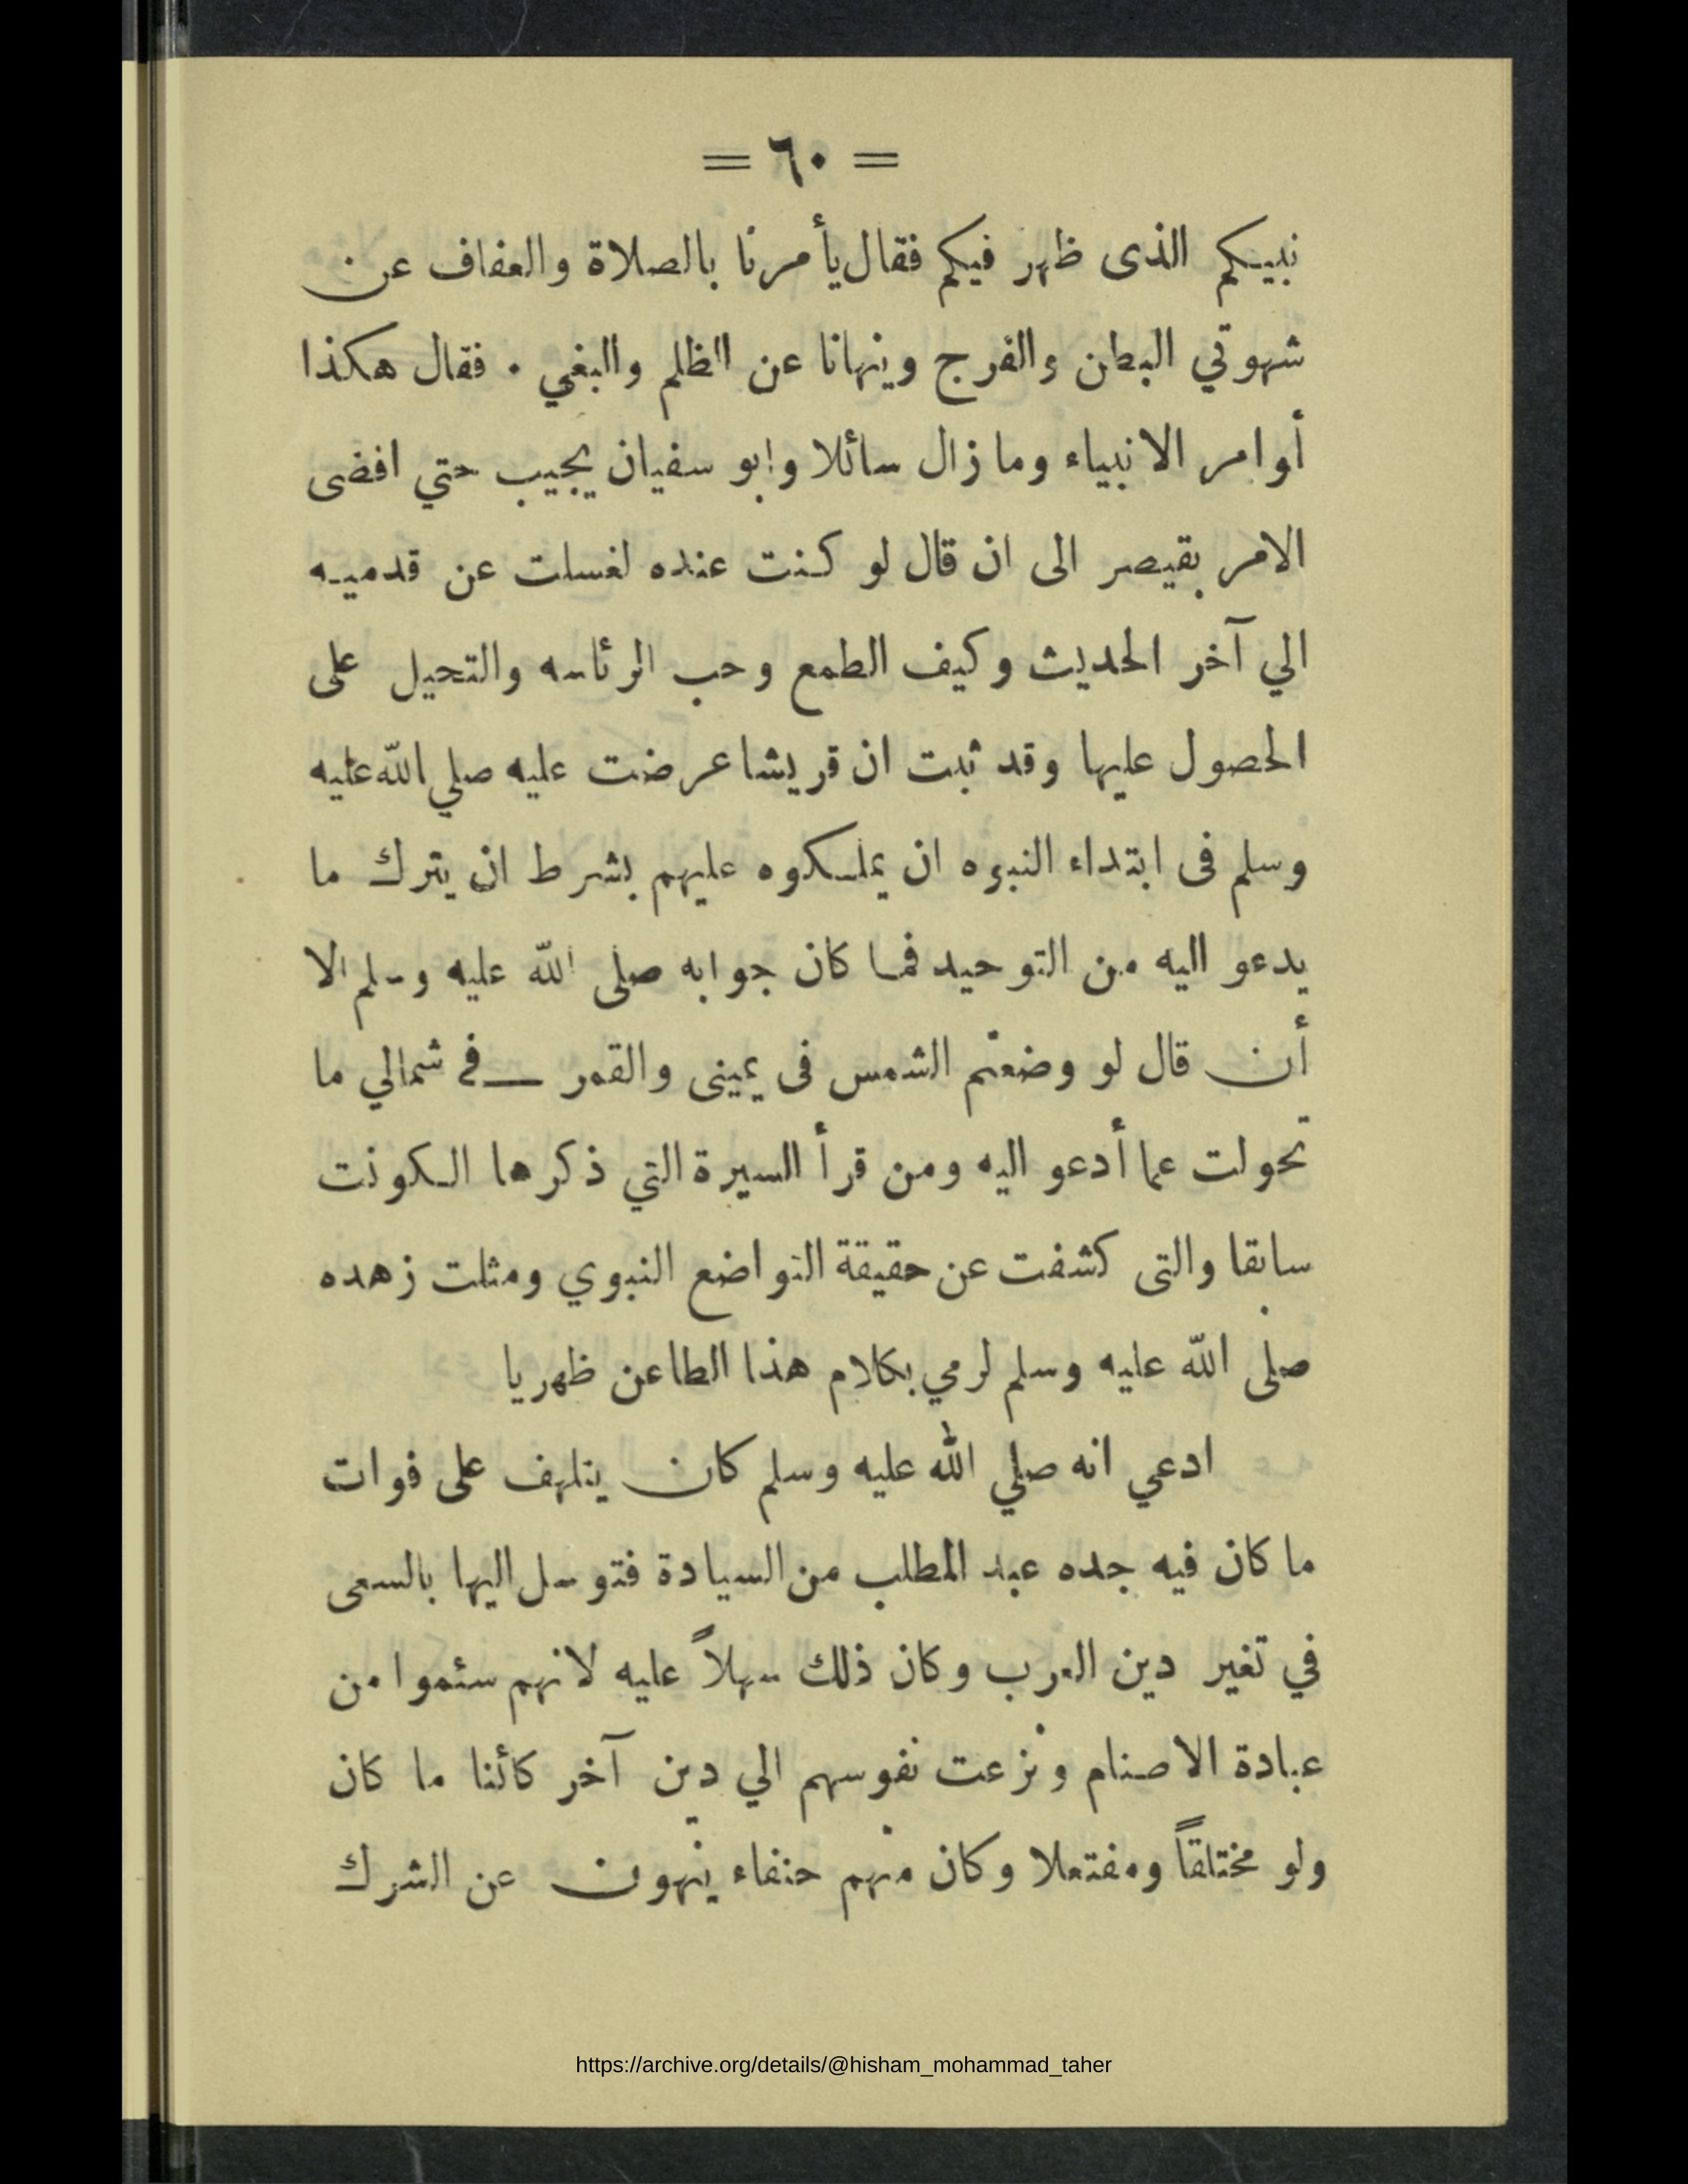 = ٦٠ =
نبيكم الذى ظهر فيكم فقال يأمرنا بالصلاة والعفاف عن
شهوتي البطن والفرج وينهانا عن الظلم والبغي . فقال هكذا
أوامر الانبياء وما زال سائلا وابو سفيان يجيب حتي افضى
الامر بقيصر الى ان قال لو كنت عنده لغسلت عن قدميه
الي آخر الحديث وكيف الطمع وحب الرئاسه والتحيل على
الحصول عليها وقد ثبت ان قريشا عرضت عليه صلي الله عليه
وسلم فى ابتداء النبوه ان يملكوه عليهم بشرط ان يترك ما
يدعو اليه من التوحيد فما كان جوابه صلى الله عليه وسلم الا
أن قال لو وضعتم الشمس فى يمينى والقمر في شمالي ما
تحولت عما أدعو اليه ومن قرأ السيرة التي ذكرها الكونت
سابقا والتى كشفت عن حقيقة التواضع النبوي ومثلت زهده
صلى الله عليه وسلم لرمي بكلام هذا الطاعن ظهريا
ادعي انه صلي الله عليه وسلم كان يتلهف على فوات
ما كان فيه جده عبد المطلب من السيادة فتوسل اليها بالسعى
في تغير دين العرب وكان ذلك سهلاً عليه لانهم سئموا من
عبادة الاصنام ونزعت نفوسهم الي دين آخر كائنا ما كان
ولو مختلقاً ومفتعلا وكان منهم حنفاء ينهون عن الشرك
https://archive.org/details/@hisham_mohammad_taher